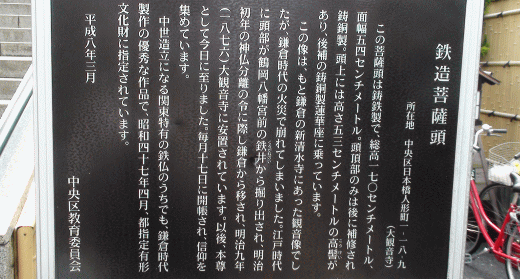 鉄造菩薩頭
所在地　中央区日本橋人形町一-一八-九
（大観音寺）
この菩薩頭は鋳鉄製で、総高一七〇センチメートル、
面幅五四センチメートル。頭頂部のみは後に補修され
鋳銅製。頭上には高さ五三センチメートルの高髻が
あり、後補の鋳銅製蓮華座に乗っています。
この像は、もと鎌倉の新清水寺にあった観音像でし
たが、鎌倉時代の火災で崩れてしまいました。江戸時代
に頭部が鶴岡八幡宮前の鉄井から掘り出され、明治
初年の神仏分離の令に際し鎌倉から移され、明治九年
（一八七六）大観音寺に安置されています。以後、本尊
として今日に至りました。毎月十七日に開帳され、信仰を
集めています。
中世造立になる関東特有の鉄仏のうちでも、鎌倉時代
製作の優秀な作品で、昭和四十七年四月、都指定有形
文化財に指定されています。
平成八年三月
中央区教育委員会